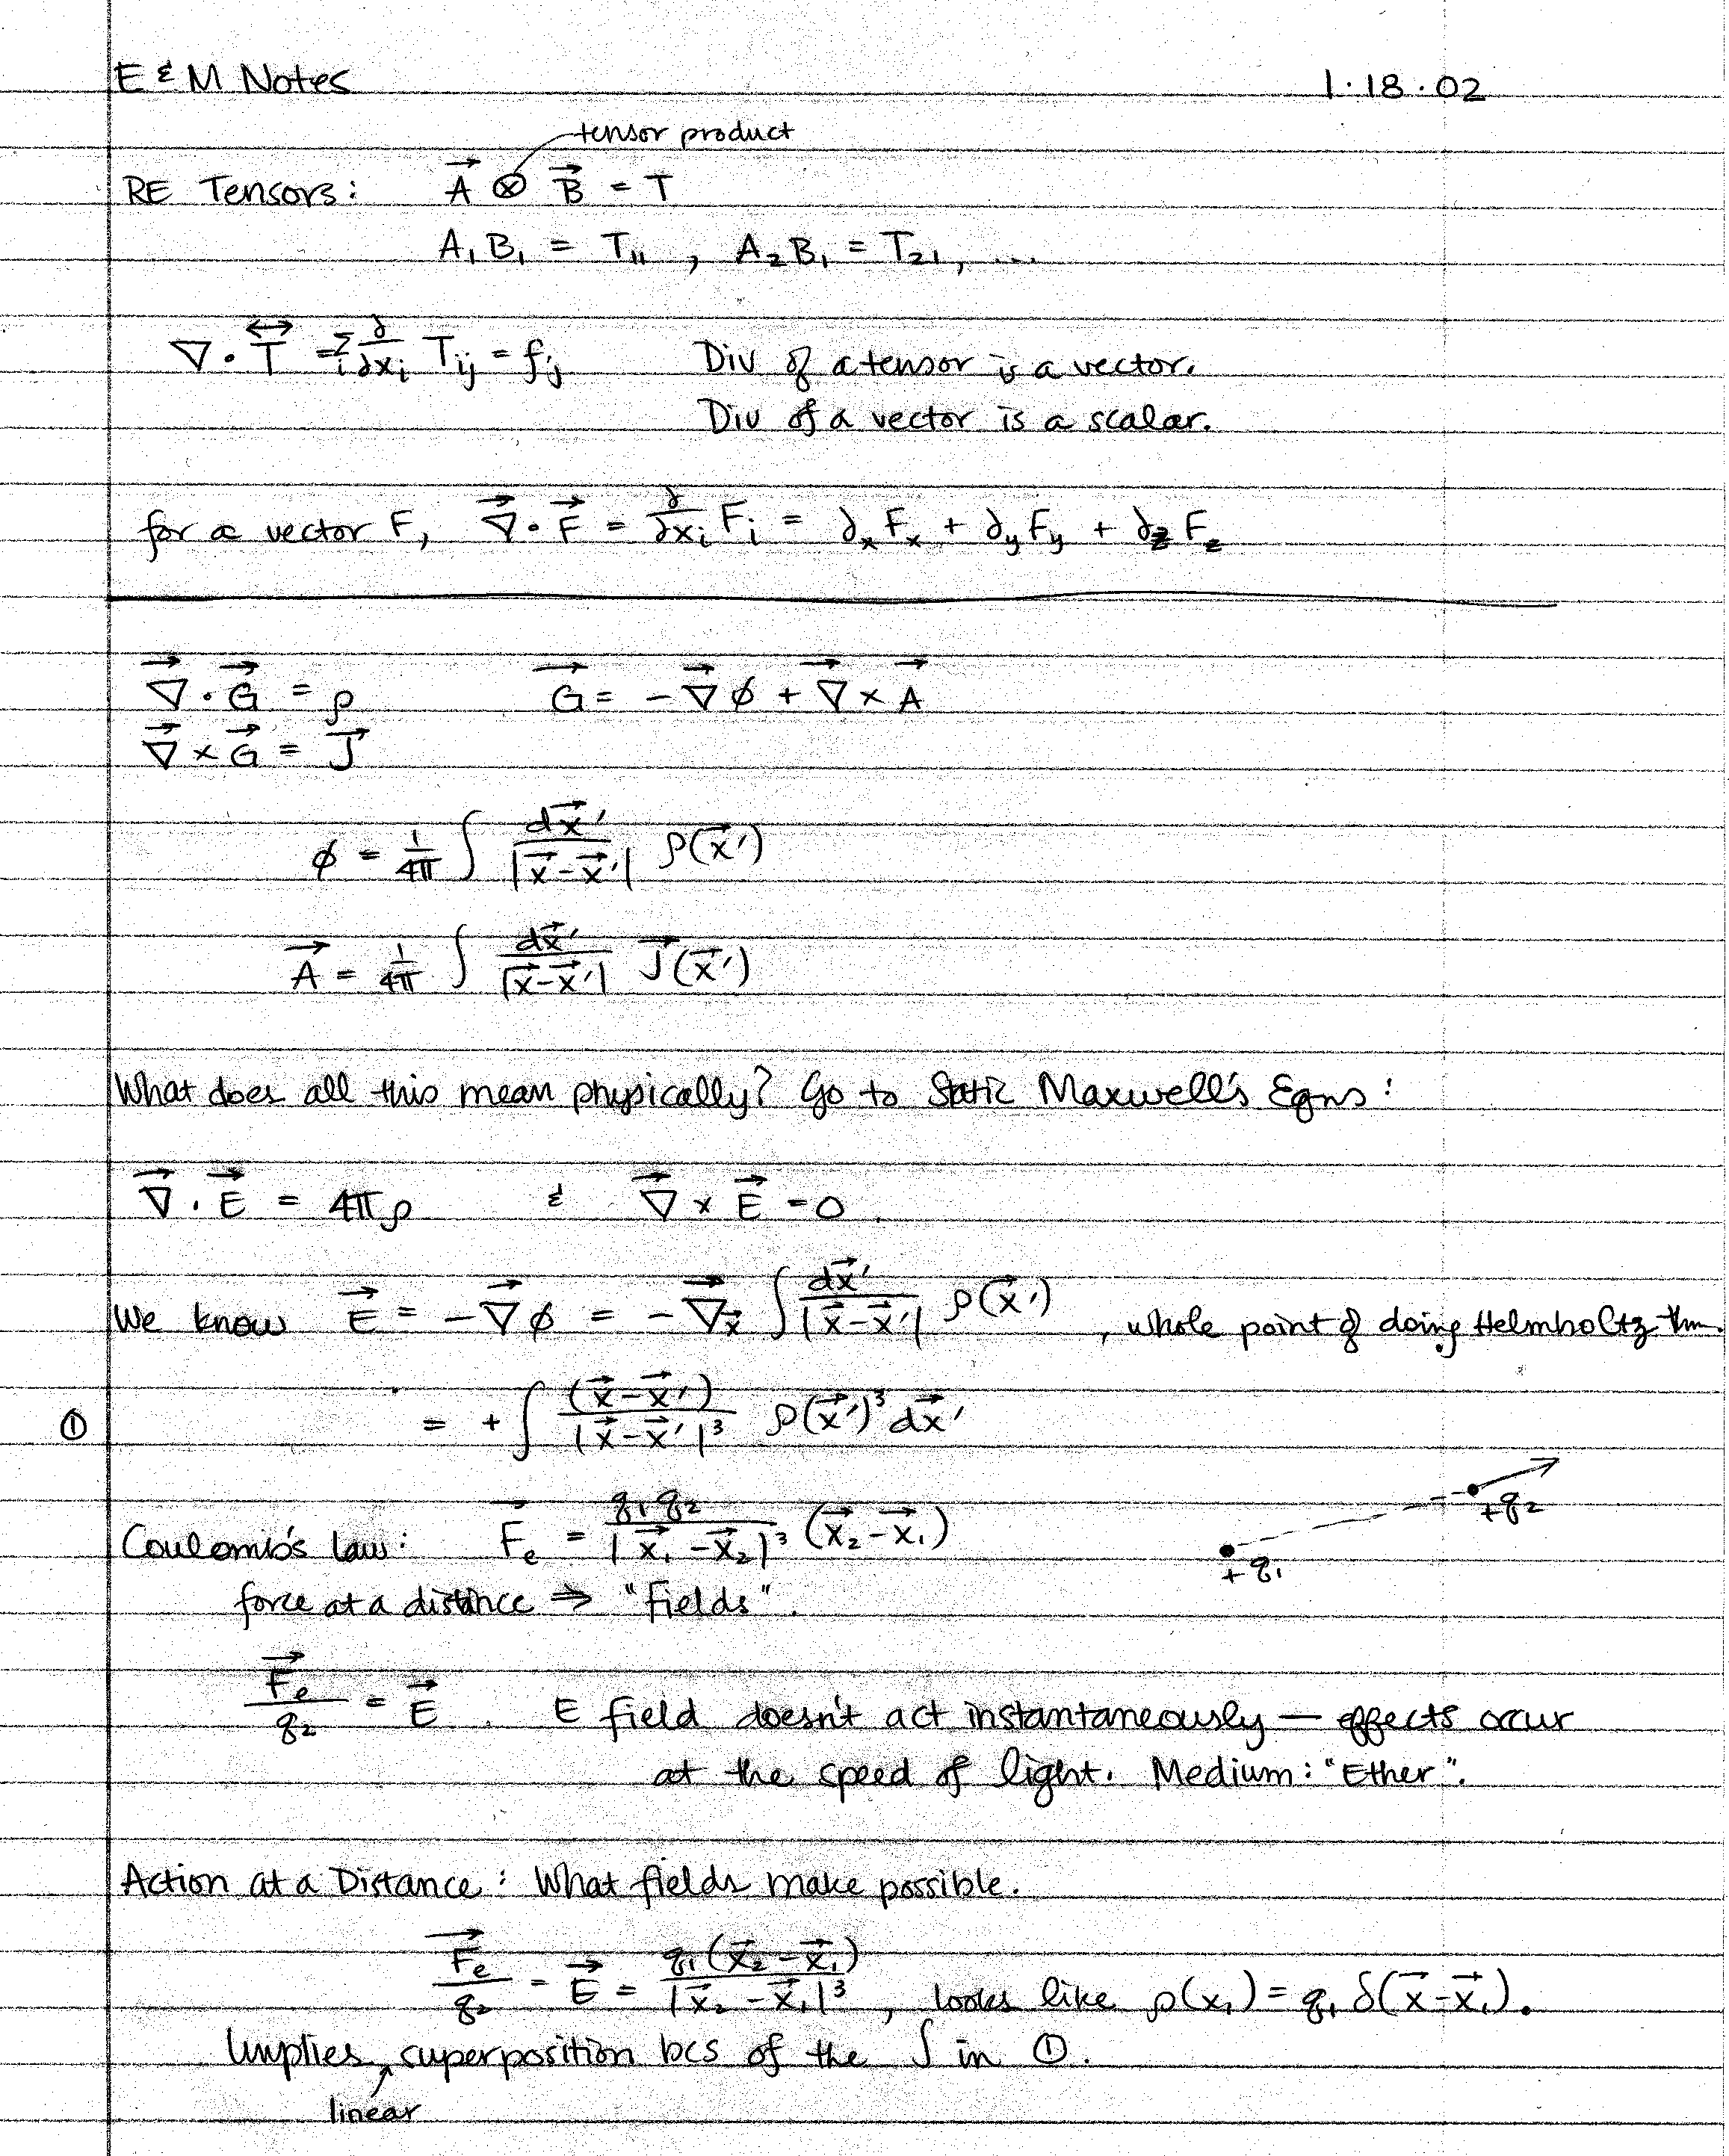 E & M Notes 1·18·02
tensor product
RE Tensors: A⃗ ⊗ B⃗ = T
A₁B₁ = T₁₁ , A₂B₁ = T₂₁, ...
∇ · T⃡ = Σᵢ ∂/∂xᵢ Tᵢⱼ = fⱼ Div of a tensor is a vector.
Div of a vector is a scalar.
for a vector F, ∇⃗ · F⃗ = ∂/∂xᵢ Fᵢ = ∂ₓFₓ + ∂yFy + ∂zFz
∇⃗ · G⃗ = ρ G⃗ = -∇⃗ϕ + ∇⃗ × A⃗
∇⃗ × G⃗ = J⃗
ϕ = 1/4π ∫ dx⃗'/|x⃗-x⃗'| ρ(x⃗')
A⃗ = 1/4π ∫ dx⃗'/|x⃗-x⃗'| J⃗(x⃗')
What does all this mean physically? Go to Static Maxwell's Eqns:
∇⃗ · E⃗ = 4πρ & ∇⃗ × E⃗ = 0.
We know E⃗ = -∇⃗ϕ = -∇⃗x⃗ ∫ dx⃗'/|x⃗-x⃗'| ρ(x⃗') , whole point of doing Helmholtz thm.
① = + ∫ (x⃗-x⃗')/|x⃗-x⃗'|³ ρ(x⃗')³dx⃗'
Coulomb's law: F⃗e = q₁q₂/|x⃗₁-x⃗₂|³ (x⃗₂-x⃗₁) +q₁ +q₂
force at a distance ⇒ "fields".
F⃗e/q₂ = E⃗. E field doesn't act instantaneously — effects occur
at the speed of light. Medium: "Ether".
Action at a Distance: What fields make possible.
F⃗e/q₂ = E⃗ = q₁(x⃗₂-x⃗₁)/|x⃗₂-x⃗₁|³ , looks like ρ(x₁) = q₁ δ(x⃗-x⃗₁).
Implies superposition bcs of the ∫ in ①.
linear